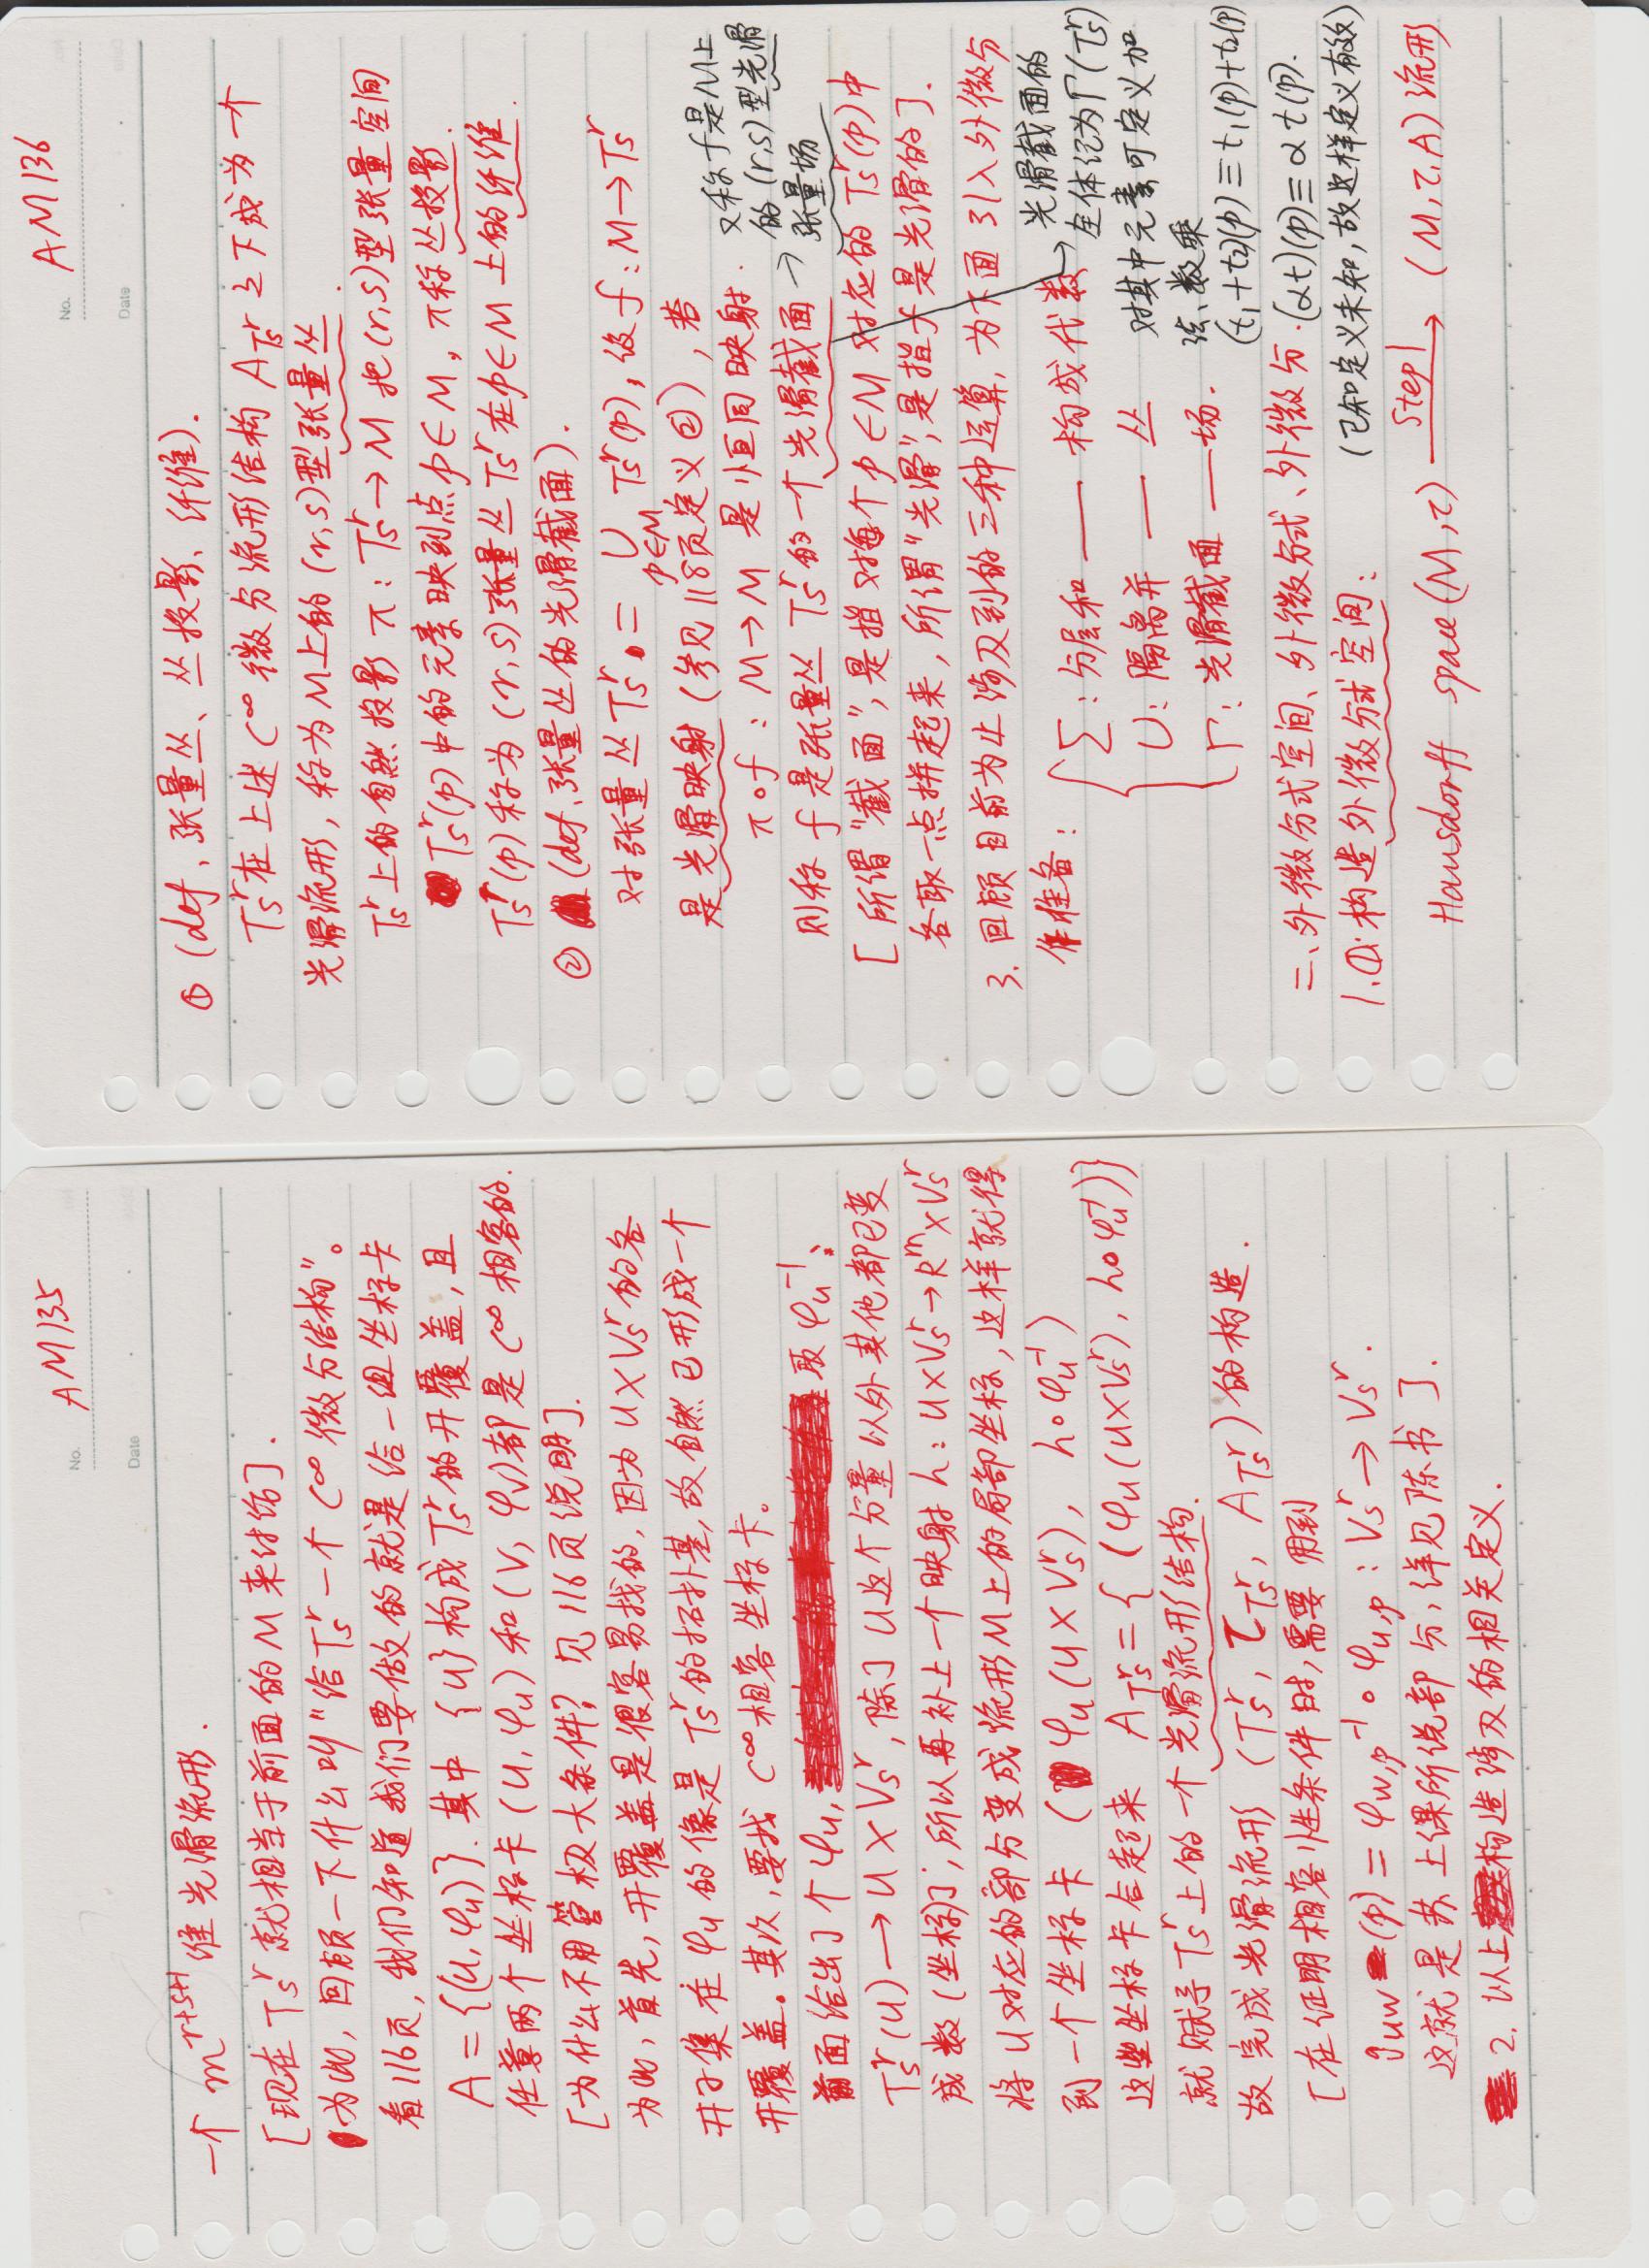 No. AM135
Date
一个 m^{r+s+1} 维光滑流形.
[现在 T_s^r 就相当于前面的 M 来讨论].
为此, 回顾一下什么叫"给 T_s^r 一个 C^∞ 微分结构"。
看116页, 我们知道我们要做的就是给一组坐标卡
A = {(U, φ_U)}. 其中 {U} 构成 T_s^r 的开覆盖, 且
任意两个坐标卡 (U, φ_U) 和 (V, φ_V) 都是 C^∞ 相容的.
[为什么不用管极大条件? 见116页说明].
为此, 首先, 开覆盖是很容易找的, 因为 U×V_s^r 的各
开子集在 φ_U 的像是 T_s^r 的拓扑基, 故自然已形成一个
开覆盖。其次, 要找 C^∞ 相容坐标卡。
前面给出了个 φ_U, 取 φ_U^{-1}:
T_s^r(U) → U×V_s^r, 除了 U 这个分量以外其他都已变
成数(坐标)了, 所以再补上一个映射 h: U×V_s^r → R^m×V_s^r
将 U 对应的部分变成流形 M 上的局部坐标, 这样就得
到一个坐标卡 (φ_U(U×V_s^r), h∘φ_U^{-1})
这些坐标卡合起来 A_{T_s^r} = {(φ_U(U×V_s^r), h∘φ_U^{-1})}
就赋予 T_s^r 上的一个光滑流形结构.
故完成光滑流形 (T_s^r, τ_{T_s^r}, A_{T_s^r}) 的构造.
[在证明相容性条件时, 需要用到
g_{UW}(p) = φ_{W,p}^{-1} ∘ φ_{U,p} : V_s^r → V_s^r.
这就是苏上课所说部分, 详见陈书].
2. 以上构造涉及的相关定义.
No. AM136
Date
① (def, 张量丛、丛投影、纤维).
T_s^r 在上述 C^∞ 微分流形结构 A_{T_s^r} 之下成为一个
光滑流形, 称为 M 上的 (r,s) 型张量丛.
T_s^r 上的自然投影 π: T_s^r → M 把 (r,s) 型张量空间
T_s^r(p) 中的元素映到点 p∈M, π 称丛投影.
T_s^r(p) 称为 (r,s) 张量丛 T_s^r 在 p∈M 上的纤维.
② (def, 张量丛的光滑截面).
对张量丛 T_s^r = ∪_{p∈M} T_s^r(p), 设 f: M → T_s^r
是光滑映射 (参见118页定义②), 若
π∘f : M → M 是恒同映射.
则称 f 是张量丛 T_s^r 的一个光滑截面 →
又称 f 是 M 上
的 (r,s) 型光滑
张量场
[所谓"截面", 是指对每个 p∈M 对应的 T_s^r(p) 中
各取一点拼起来, 所谓"光滑", 是指 f 是光滑的].
3. 回顾目前为止涉及到的三种运算, 为下面引入外微分
作准备:
Σ: 分层和 —— 构成代数
∪: 隔离并 —— 丛
Γ: 光滑截面 —— 场.
→ 光滑截面的
全体记为 Γ(T_s^r)
对其中元素可定义加
法、数乘
(t_1+t_2)(p) ≡ t_1(p)+t_2(p)
(αt)(p) ≡ α t(p).
(已知定义未知, 故这样定义有效)
二、外微分式空间、外微分式、外微分.
1. ①: 构造外微分式空间:
Hausdorff space (M, τ) —Step1→ (M, τ, A) 流形